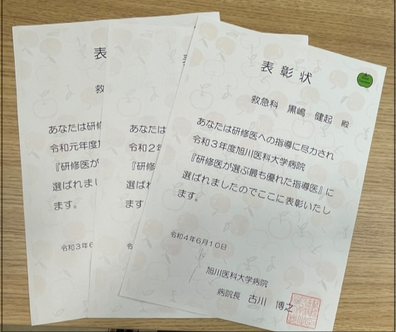 表
救
あなたは研修
令和元年度旭
『研修医が
選ばれまし
ます。
令和3年6
表
あなたは
令和2年
『研修医
選ばれ
ます。
表彰状
救急科 黒嶋 健起 殿
あなたは研修医への指導に尽力され
令和3年度旭川医科大学病院
『研修医が選ぶ最も優れた指導医』に
選ばれましたのでここに表彰いたし
ます。
令和4年6月10日
旭川医科大学病院
病院長 古川 博之